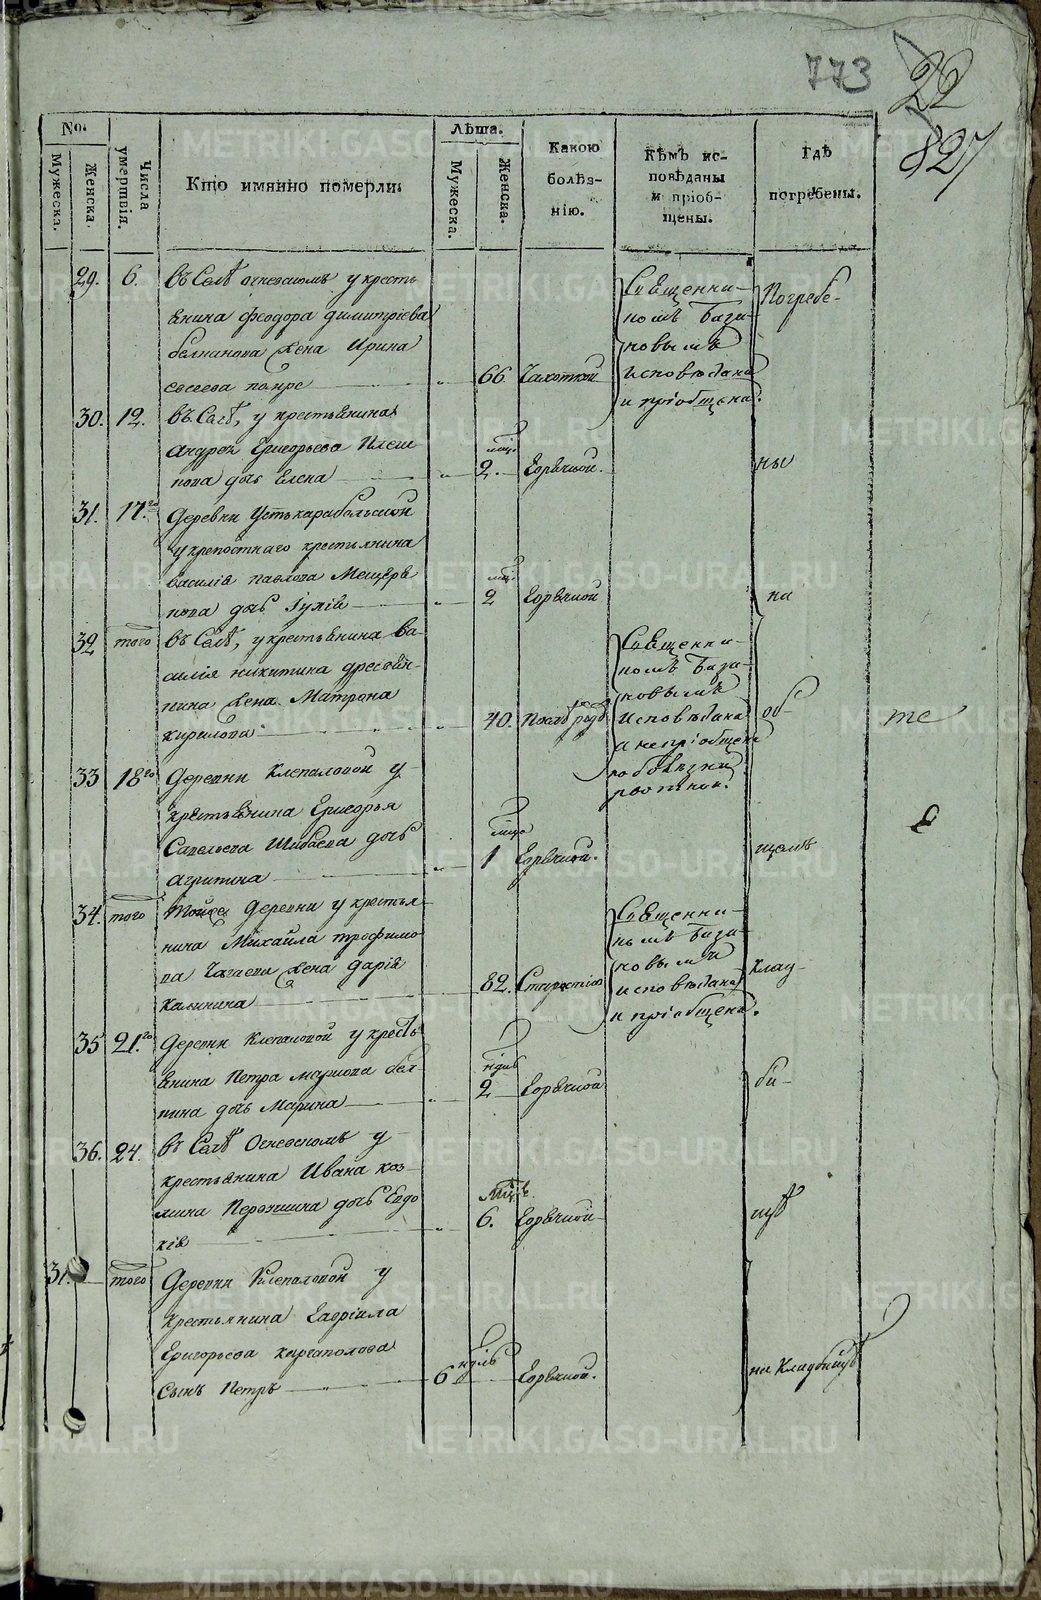 773
22
827
No.
Мужеска.
Женска.
Числа умертвія.
Кто имянно померли:
Лѣта.
Мужеска.
Женска.
Какою болѣз-
нію.
Кѣмъ ис-
повѣданы
и пріоб-
щены.
Гдѣ
погребены.
29. 6. въ Селѣ огневскомъ у кресть
янина феодора димитріева
жена Ирина
66 Чахоткой
Священни-
комъ Бази-
новымъ
исповѣдана
и пріобщена.
Погребе-
30. 12. въ Селѣ, у крестьянина
андрея Григорьева
дочь Елена 2. Горячкой.
ны
31. 17.го деревни Устькарабольской
у крепостнаго крестьянина
василія павлова Мещеря
кова дочь Іулія 2 Горячкой
на
32 того въ Селѣ, у крестьянина ва-
силія никитина
жена Матрона
кирилова 40.
Священни-
комъ Бази-
новымъ
исповѣдана
а непріобщена
об-
те
33 18го деревни Клепаловой у
крестьянина Григорья
Савельева Шибаева дочь
агрипина 1 Горячкой.
щемъ
34. того тойже деревни у крестья-
нина Михайла трофимо
ва жена дарія
калинина 82. Старостію
Священни-
комъ Бази-
новымъ
исповѣдана
и пріобщена.
клад-
35 21.го деревни клепаловой у кресть
янина Петра
дочь Марина 2 Горячкой
би-
36. 24. въ Селѣ Огневскомъ у
крестьянина Ивана коз-
мина дочь Евдо
кія 6. Горячкой
щѣ
37. того деревни Клепаловой у
крестьянина Гавріила
Григорьева каргаполова
Сынъ Петръ 6 Горячкой.
на Кладбищѣ
METRIKI.GASO-URAL.RU